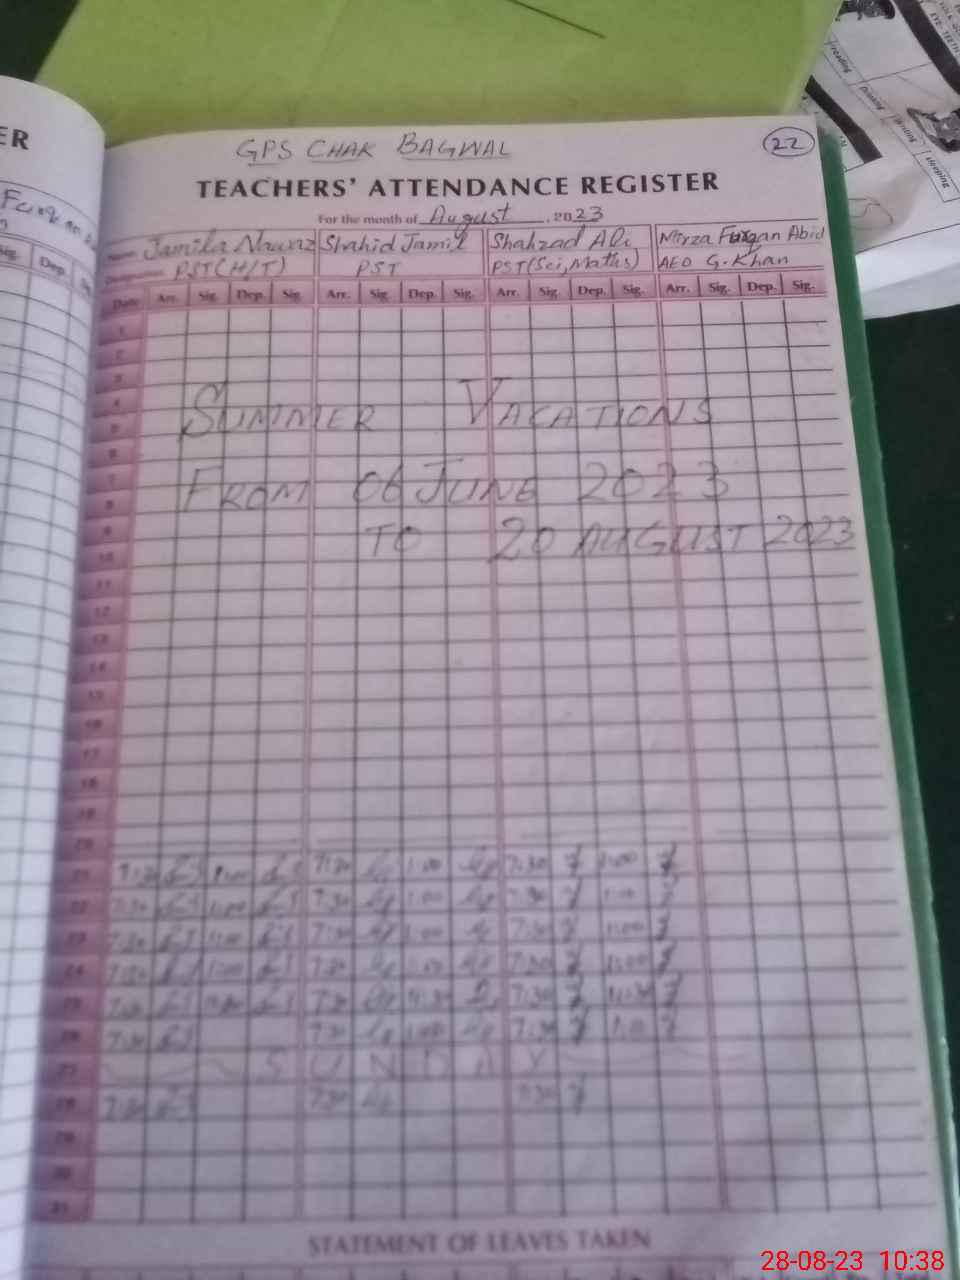 ER
GPS CHAK BAGWAL
22
TEACHERS' ATTENDANCE REGISTER
For the month of August, 2023
Name Jamila Nawaz Shahid Jamil Shahzad Ali Mirza Furqan Abid
Designation PST(H/T) PST PST(Sci, Maths) AEO G. Khan
Sig. Dep.
Date Arr. Sig. Dep. Sig. Arr. Sig. Dep. Sig. Arr. Sig. Dep. Sig. Arr. Sig. Dep. Sig.
1
2
3
4
SUMMER VACATIONS
5
6
7
FROM 06 JUNE 2023
8
9
TO 20 AUGUST 2023
10
11
12
13
14
15
16
17
18
19
20
21 7:30 1:00 7:30 1:00 7:30 1:00
22 7:30 1:00 7:30 1:00 7:30 1:00
23 7:30 1:00 7:30 1:00 7:30 1:00
24 7:30 1:00 7:30 1:00 7:30 1:00
25 7:30 11:30 7:30 11:30 7:30 11:30
26 7:30 7:30 1:00 7:30 1:00
27 SUNDAY
28 7:30 7:30 7:30
29
30
31
STATEMENT OF LEAVES TAKEN
reading
Drinking
Writing
sleeping
28-08-23 10:38